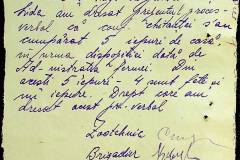 am dresat prezentul proces
verbal că conf. chitanței s'au
cumpărat 5 iepuri de casă
în urma dispoziției dată de
Ad-mistrația fermei. Din
acești 5 iepuri - 4 sunt fete și
un iepure. Drept care am
dresat acest pr. verbal
Zootehnic
Brigadier